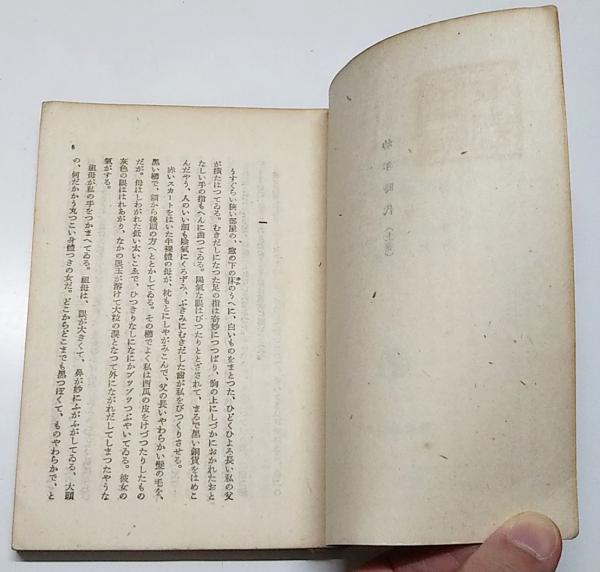 幼年時代（上巻）
一
うすぐらい狭い部屋の、窓の下の床のうへに、白いものをまとつた、ひどくひよろ長い私の父
が横たはつてゐる。むきだしになつた足の指は奇妙につつぱり、胸の上にしづかにおかれたおと
なしい手の指もへんに曲つてゐる。陽氣な眼はぴつたりととざされて、まるで黒い銅貨をはめこ
んだやう、人のいい顏も陰氣にくろずみ、ぶきみにむきだした歯が私をびつくりさせる。
赤いスカートをはいた半裸體の母が、枕もとにしやがみこんで、父の長いやわらかい髮の毛を、
黒い櫛で、額から後頭の方へととかしてゐる。その櫛でよく私は西瓜の皮をけづつたりしたもの
だが。母はしわがれた低い太いこゑで、ひつきりなしになにかブツブツつぶやいてゐる。彼女の
灰色の眼ははれあがり、なかの眼玉が溶けて大粒の涙となつて外にながれだしてしまつたやうな
氣がする。
祖母が私の手をつかまへてゐる。祖母は、眼が大きくて、鼻が妙にふがふがしてゐる、大頭
の、何だかかう丸つこい身體つきの女だ。どこからどこまでも黒つぽくて、ものやわらかで、と